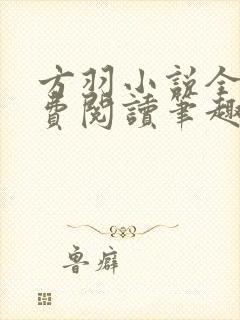 方羽小說全
費閱讀筆趣
魯癖